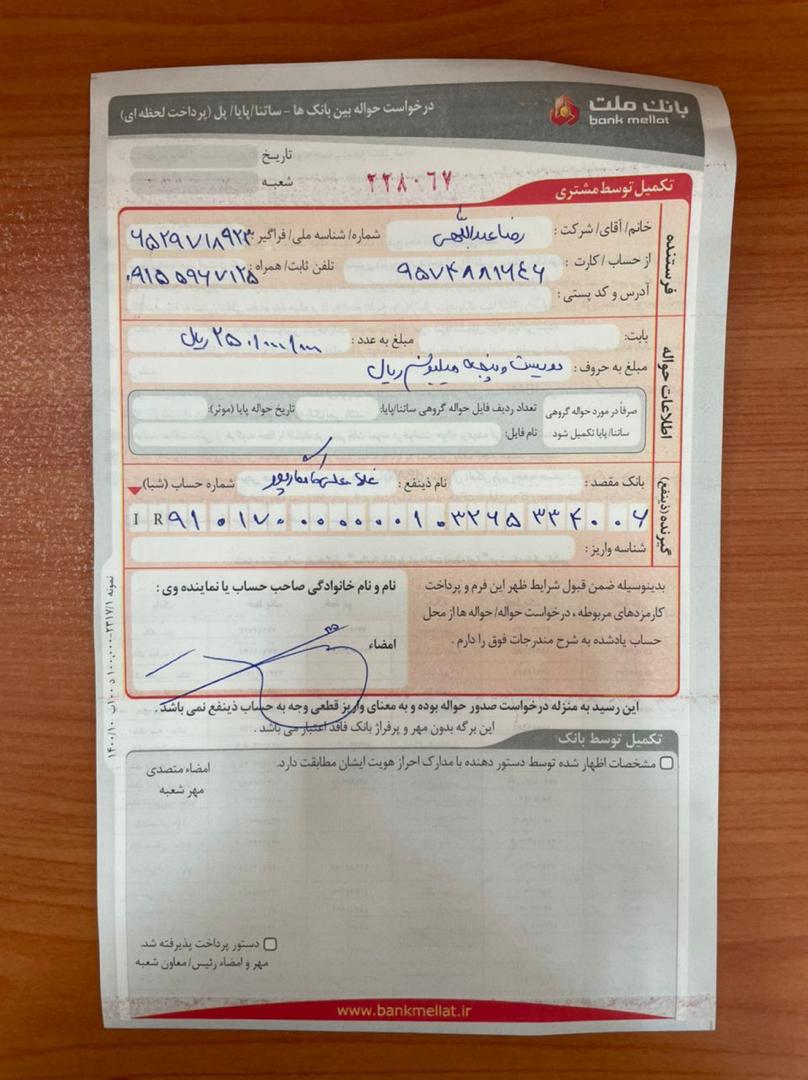 بانک ملت
bank mellat
درخواست حواله بین بانک ها - ساتنا/پایا/ پل (پرداخت لحظه ای)
تاریخ
شعبه
۲۲۸۰۶۷
تکمیل توسط مشتری
فرستنده
خانم/ آقای/ شرکت : رضا عبداللهی شماره/ شناسه ملی/ فراگیر : ۶۵۲۹۷۱۸۹۲۳
از حساب / کارت : ۹۵۷۴۸۸۱۶۴۶ تلفن ثابت/ همراه : ۰۹۱۵۵۹۶۷۱۲۵
آدرس و کد پستی :
اطلاعات حواله
بابت: مبلغ به عدد : ۲۵۰/۰۰۰/۰۰۰ ریال
مبلغ به حروف : دویست و پنجاه میلیون ریال
صرفاً در مورد حواله گروهی ساتنا/پایا تکمیل شود
تعداد ردیف فایل حواله گروهی ساتنا/پایا: تاریخ حواله پایا (موثر):
نام فایل:
گیرنده (ذینفع)
بانک مقصد : نام ذینفع : شماره حساب (شبا)
IR ۹۱۰۱۷۰۰۰۰۰۰۰۱۰۳۲۶۵۳۳۴۰۰۶
شناسه واریز :
بدینوسیله ضمن قبول شرایط ظهر این فرم و پرداخت
کارمزدهای مربوطه ، درخواست حواله/ حواله ها از محل
حساب یادشده به شرح مندرجات فوق را دارم .
نام و نام خانوادگی صاحب حساب یا نماینده وی :
امضاء
این رسید به منزله درخواست صدور حواله بوده و به معنای واریز قطعی وجه به حساب ذینفع نمی باشد .
این برگه بدون مهر و پرفراژ بانک فاقد اعتبار می باشد .
تکمیل توسط بانک
مشخصات اظهار شده توسط دستور دهنده با مدارک احراز هویت ایشان مطابقت دارد.
امضاء متصدی
مهر شعبه
دستور پرداخت پذیرفته شد.
مهر و امضاء رئیس/ معاون شعبه
www.bankmellat.ir
نمونه ۲۳۱۷/۱-۱۰۰,۰۰۰ د ۱۰۰ ب ۱۴۰۰/۱۰